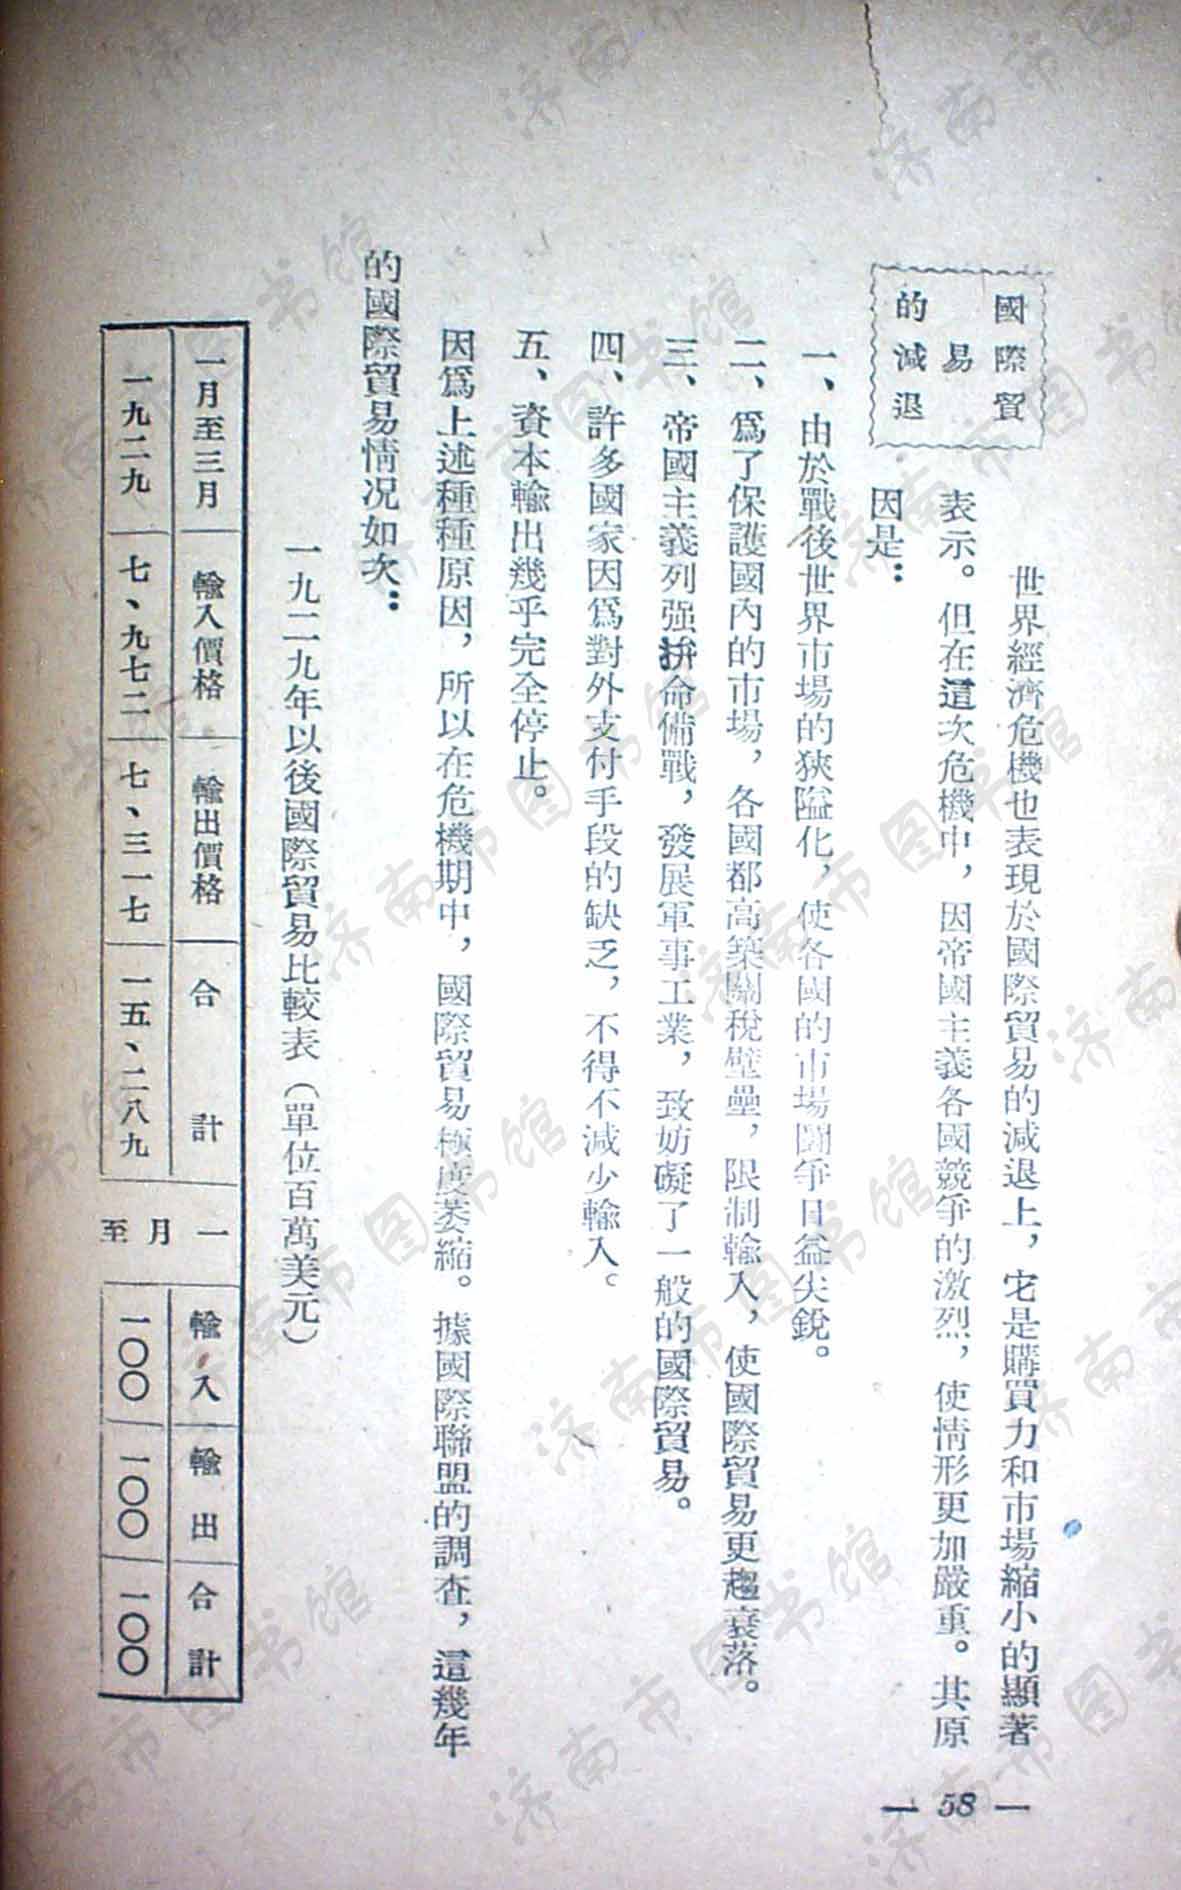 國際貿
易
的減退
世界經濟危機也表現於國際貿易的減退上，它是購買力和市場縮小的顯著
表示。但在這次危機中，因帝國主義各國競爭的激烈，使情形更加嚴重。其原
因是：
一、由於戰後世界市場的狹隘化，使各國的市場鬭爭日益尖銳。
二、爲了保護國內的市場，各國都高築關稅壁壘，限制輸入，使國際貿易更趨衰落。
三、帝國主義列强拚命備戰，發展軍事工業，致妨礙了一般的國際貿易。
四、許多國家因爲對外支付手段的缺乏，不得不減少輸入。
五、資本輸出幾乎完全停止。
因爲上述種種原因，所以在危機期中，國際貿易極度萎縮。據國際聯盟的調查，這幾年
的國際貿易情况如次：
一九二九年以後國際貿易比較表（單位百萬美元）
一月至三月 輸入價格 輸出價格 合計 一 輸入 輸出 合計
月
一九二九 七、九七二 七、三一七 一五、二八九 至 一〇〇 一〇〇 一〇〇
— 58 —
济南市图书馆